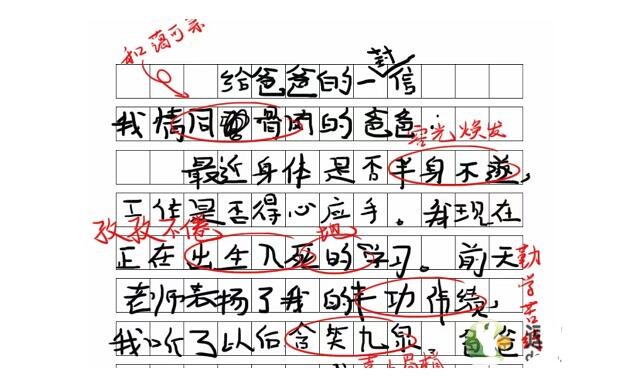 和蔼可亲
给爸爸的一封信
我情同骨肉的爸爸:
容光焕发
最近身体是否半身不遂,
工作是否得心应手。我现在
孜孜不倦 地
正在出生入死的学习。前天
勤学苦练
老师表扬了我的丰功伟绩,
我听了以后含笑九泉。爸爸